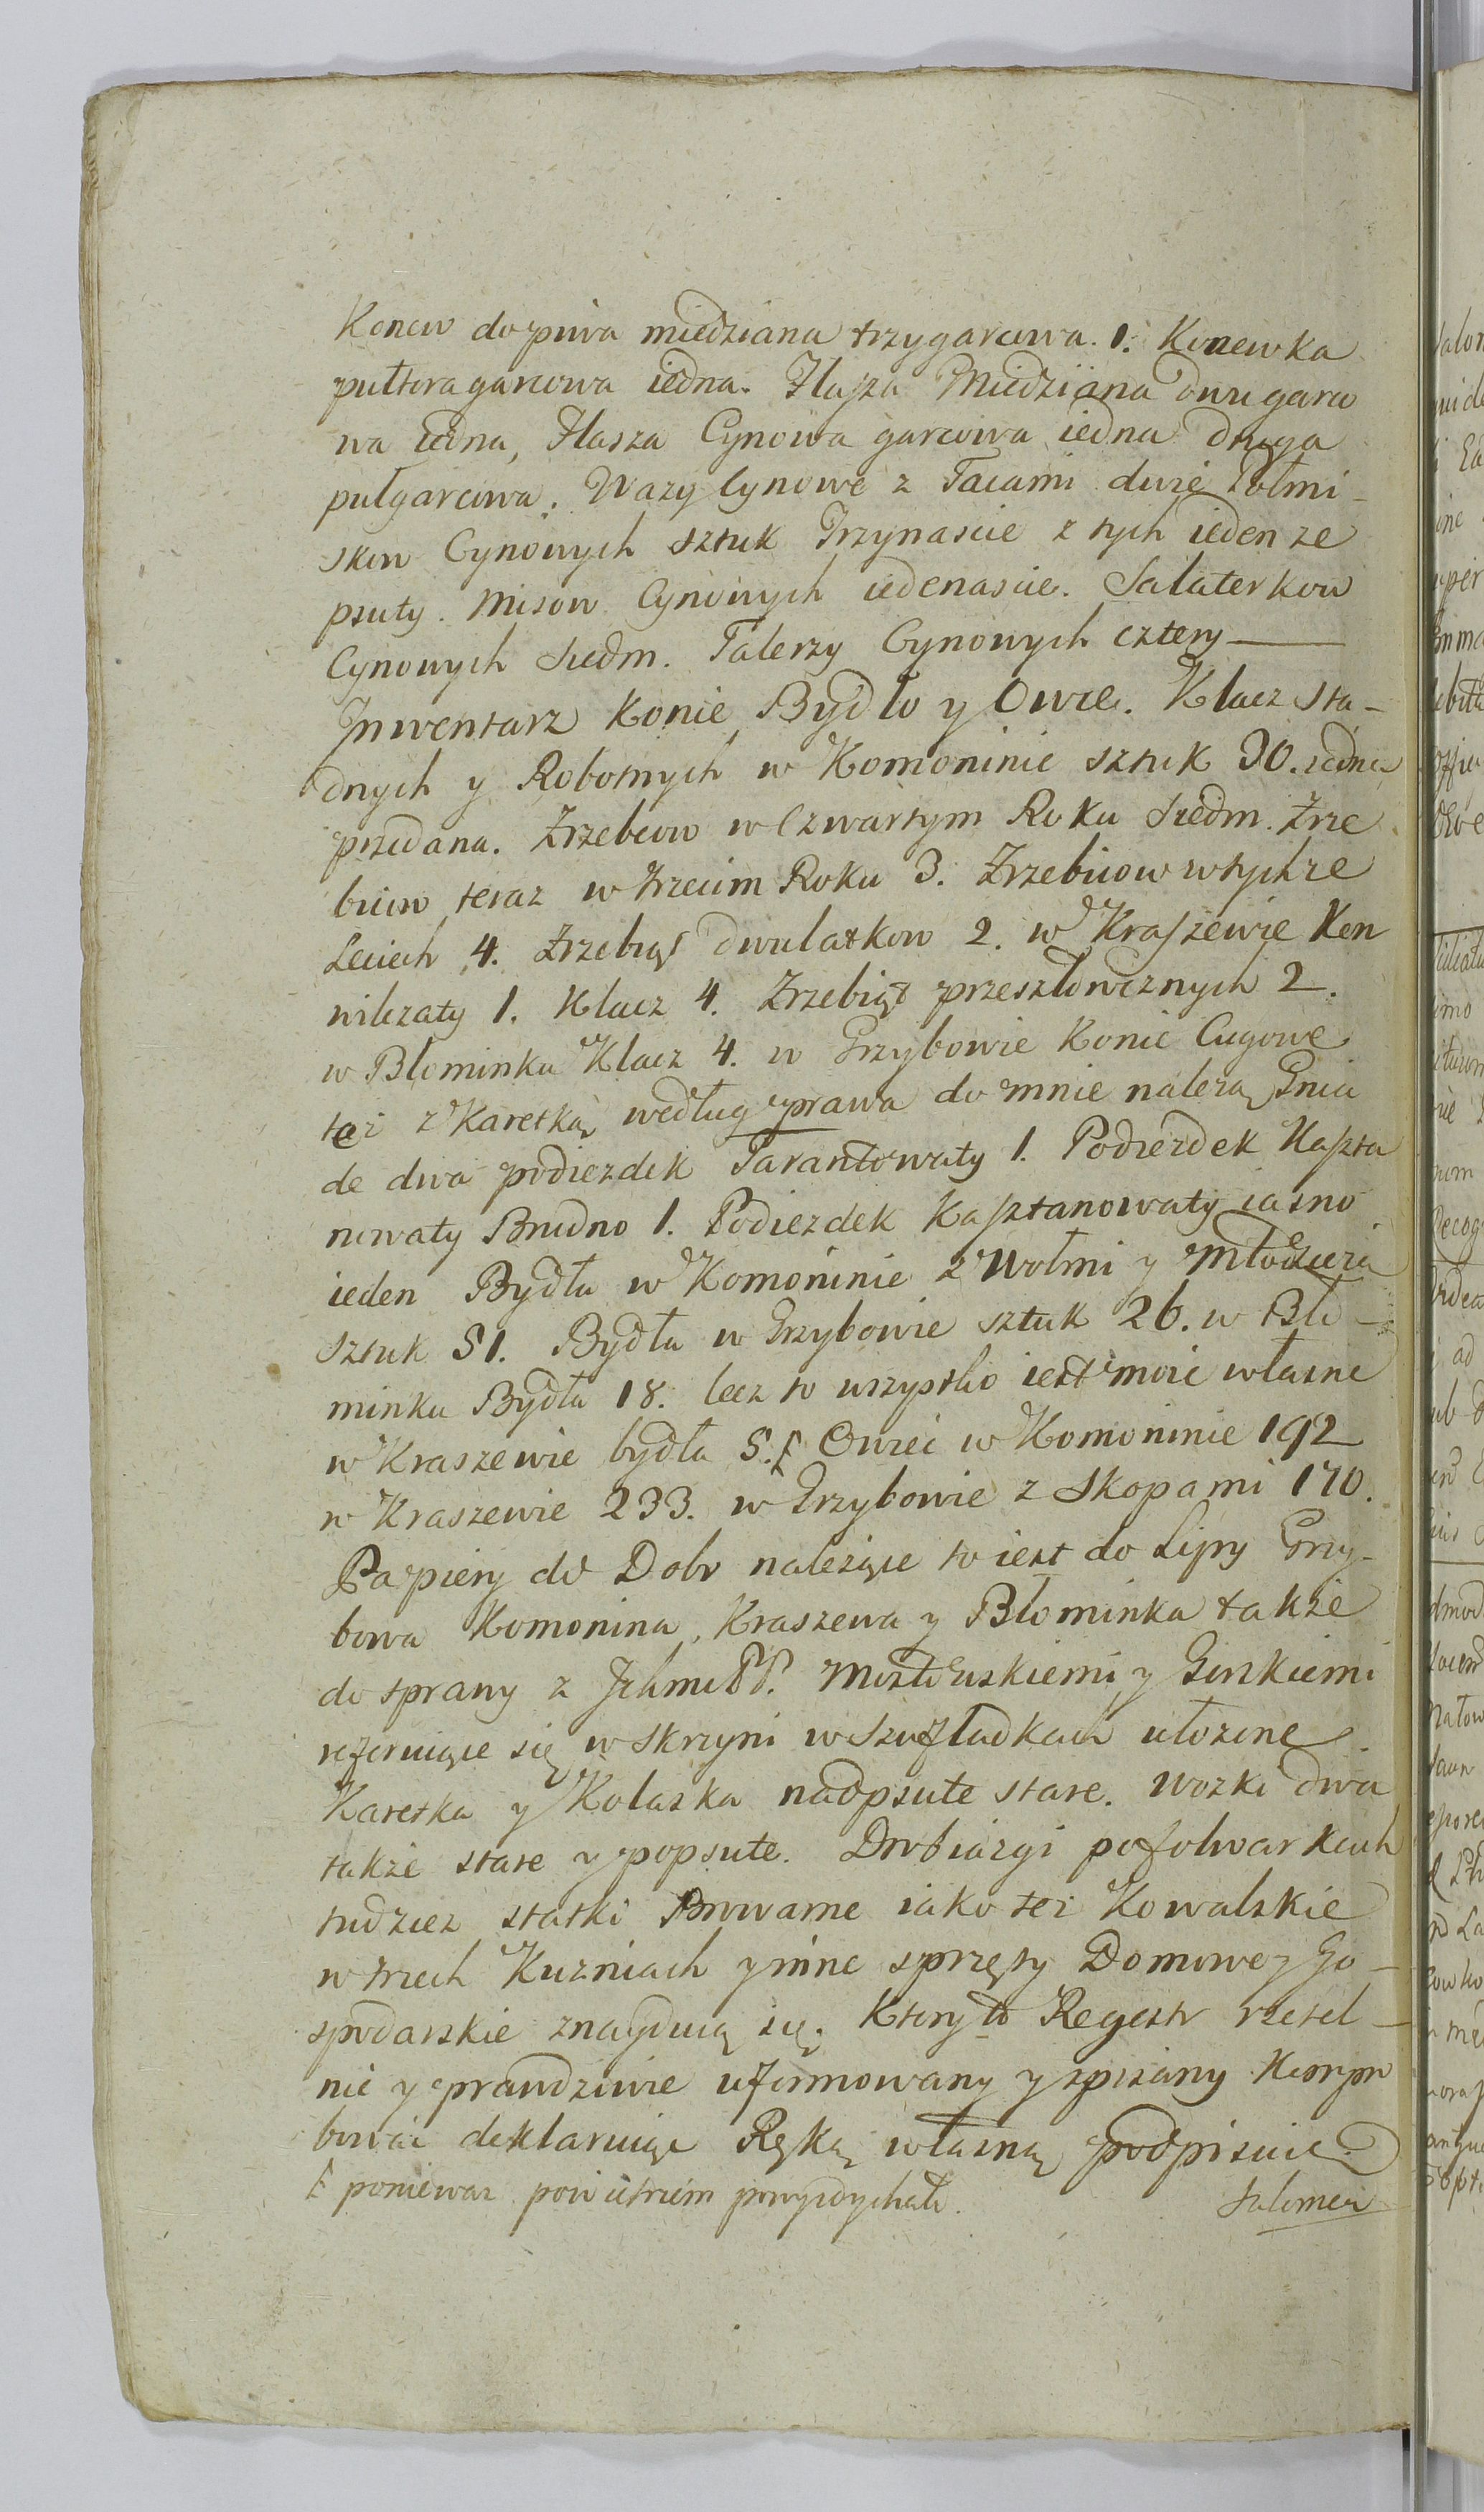 Konew do piwa miedziana trzygarcowa. 1. Konewka
pułtoragarcowa iedna. Flasza Miedziana dwugarco
wa iedna, Flasza Cynowa garcowa iedna druga
pułgarcowa. Wazy Cynowe z Tacami dwie Połmi-
skow Cynowych sztuk Trzynascie z tych ieden ze
psuty. Misow Cynowych iedenascie. Salaterkow
Cynowych siedm. Talerzy Cynowych cztery
Inwentarz Konie Bydło y Owce. Klacz sta-
dnych y Robotnych w Komoninie sztuk 30. iedna
przedana. Zrzebcow w Czwartym Roku siedm. Zrze
bcow teraz w trzecim Roku 3. Zrzebicow w tychze
Leciech 4. Zrzebiąt dwulatkow 2. w Kraszewie Kon
wilczaty 1. Klacz 4. Zrzebiąt przeszłorocznych 2.
w Błominku Klacz 4. w Grzybowie Konie Cugowe
też z Karetką według prawa do mnie należą Gnia
de dwa podiezdek Tarantowaty 1. Podiezdek Kaszta
nowaty Brudno 1. Podiezdek Kasztanowaty iasno
ieden Bydła w Komoninie z Wołmi y Młodzieżą
sztuk 51. Bydła w Grzybowie sztuk 26. w Bło-
minku Bydła 18. lecz to wszystko iest moie własne
w Kraszewie bydła 5. Owiec w Komoninie 192
w Kraszewie 233. w Grzybowie z Skopami 170.
Papiery do Dobr należące to iest do Lipy Grzy-
bowa Komonina, Kraszewa y Błominka także
do sprawy z PP.
referuiące się w Skrzyni w Szufladkach ułożone
Karetka y Kolaska nadpsute stare. Wozki dwa
także stare y popsute. Drobiazgi po folwarkach
tudziez statki Browarne iako też Kowalskie
w trzech Kuzniach y inne sprzęty Domowe y Go-
spodarskie znayduią się. Ktory to Regestr rzetel-
nie y prawdziwie uformowany y spisany Kompro
bować deklaruiąc Ręką własną podpisuie
ponieważ powietrzem powyzdychało. Salomea